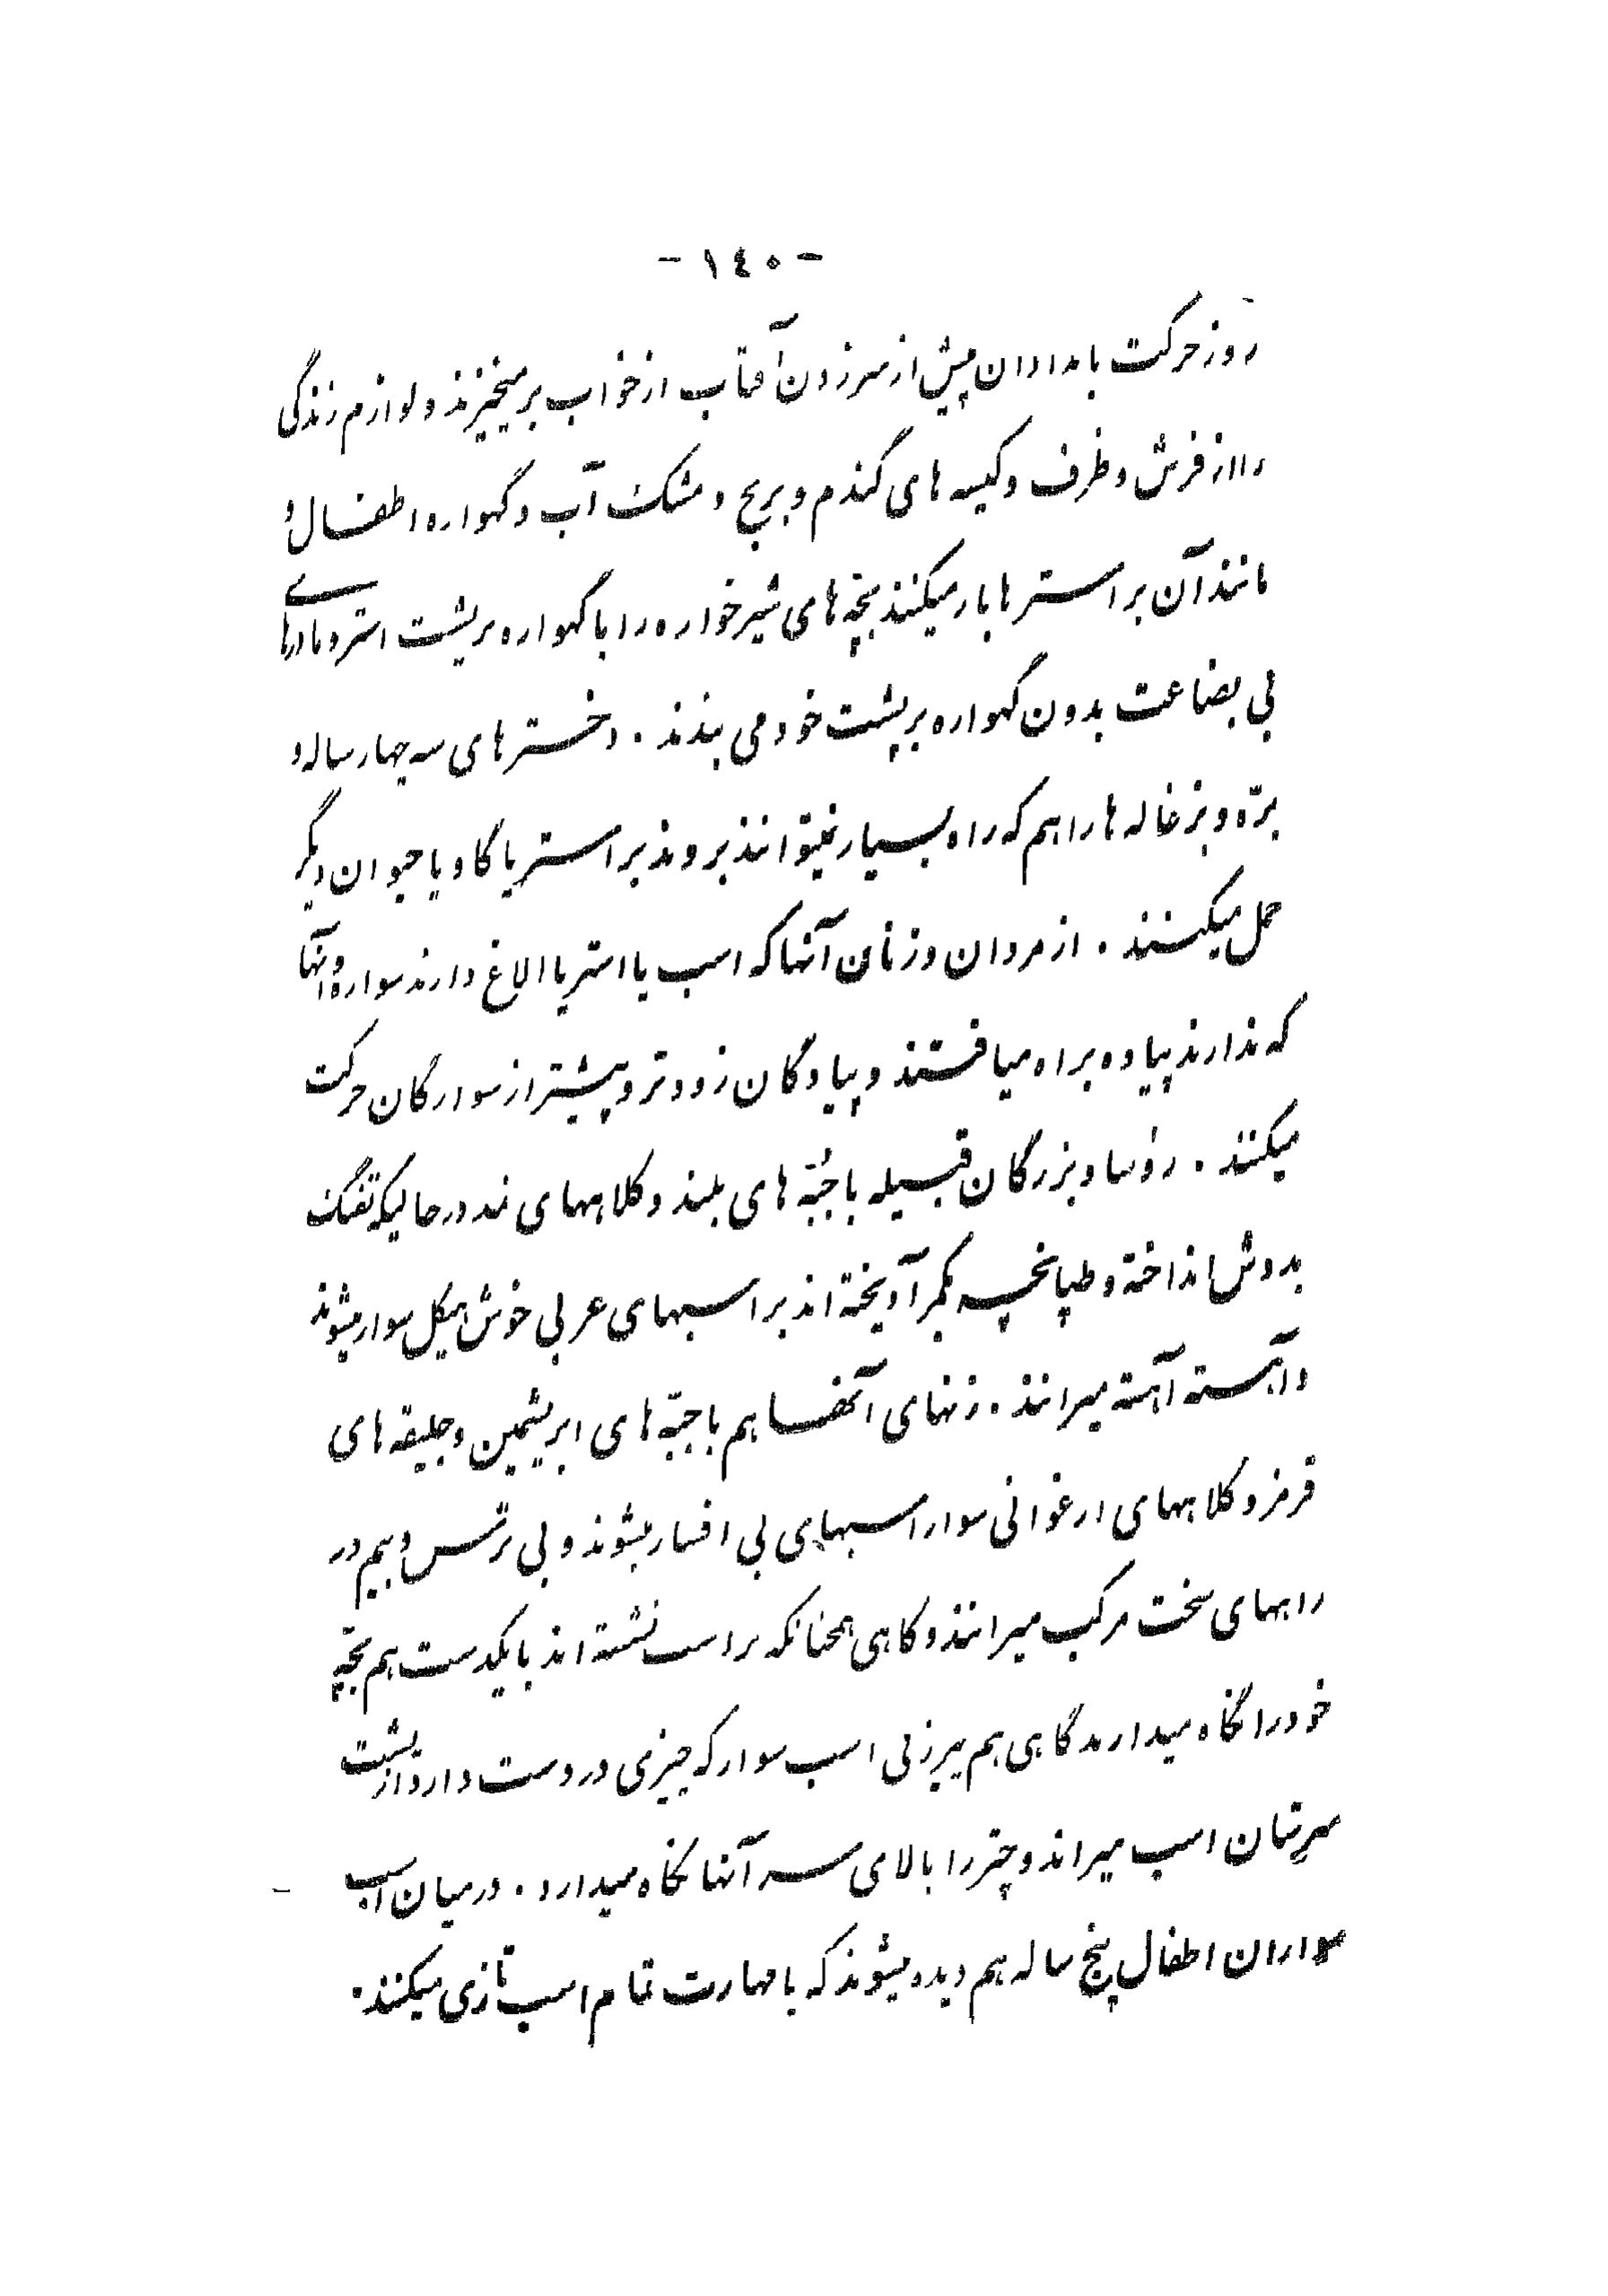 - ١٤٠ -
روز حرکت بامدادان پیش از سرزدن آفتاب از خواب برمیخیزند و لوازم زندگی
را از فرش و ظرف و کیسه های گندم و برنج و مشک آب و گهواره اطفال و
مانند آن بر استرها بار میکنند بچه های شیرخواره را با گهواره بر پشت استر و مادرهای
بی بضاعت بدون گهواره بر پشت خود می بندند . دخترهای سه چهار ساله و
برّه و بزغاله ها را هم که راه بسیار نمیتوانند بروند بر استر یا گاو یا حیوان دیگر
حمل میکنند . از مردان و زنان آنها که اسب یا استر یا الاغ دارند سواره و آنها
که ندارند پیاده براه میافتند و پیادگان زودتر و پیشتر از سوارگان حرکت
میکنند . رؤسا و بزرگان قبیله با جُبّه های بلند و کلاههای نمد در حالیکه تفنگ
بدوش انداخته و طپانچه بکمر آویخته اند بر اسبهای عربی خوش هیکل سوار میشوند
و آهسته آهسته میرانند . زنهای آنها هم با جبّه های ابریشمین و جلیقه های
قرمز و کلاههای ارغوانی سوار اسبهای بی افسار میشوند و بی ترس و بیم در
راههای سخت مرکب میرانند و گاهی همچنانکه راست نشسته اند با یکدست هم بچّه
خود را نگاه میدارند گاهی هم پیرزنی اسب سوار که چیزی در دست دارد از پشت
سرشان اسب میراند و چتر را بالای سر آنها نگاه میدارد . در میان اسب
سواران اطفال پنج ساله هم دیده میشوند که با مهارت تمام اسب تازی میکنند .